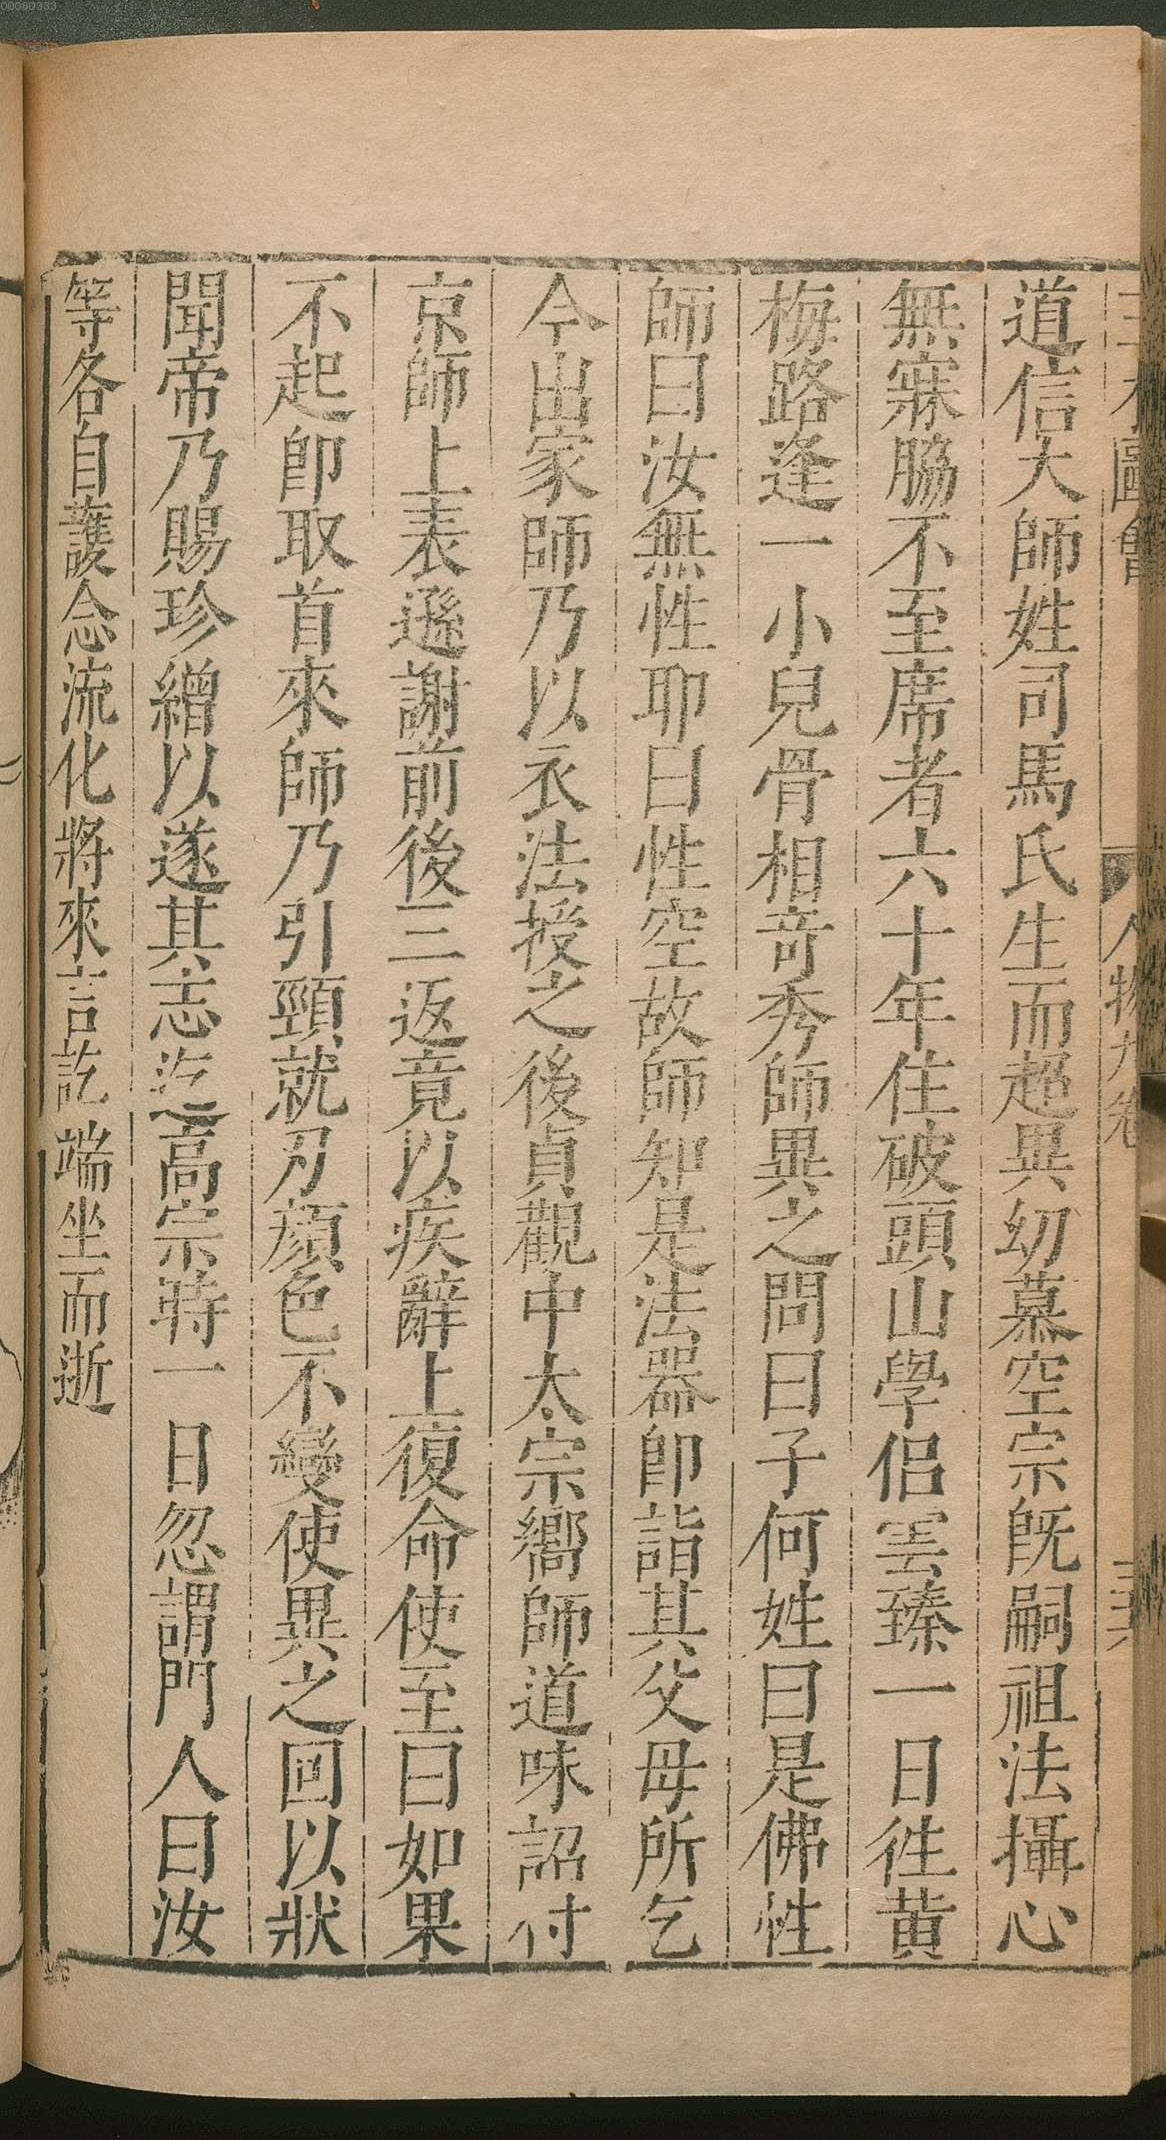 三才圖會 人物九卷 三十六
道信大師姓司馬氏生而超異幼慕空宗既嗣祖法攝心
無寐脇不至席者六十年住破頭山學侶雲臻一日徃黄
梅路逢一小兒骨相竒秀師異之問曰子何姓曰是佛性
師曰汝無性耶曰性空故師知是法器卽詣其父母所乞
令出家師乃以衣法授之後貞觀中太宗嚮師道味詔付
京師上表遜謝前後三返竟以疾辭上復命使至曰如果
不起卽取首來師乃引頸就刃顔色不變使異之回以狀
聞帝乃賜珍繒以遂其志迄高宗時一日忽謂門人曰汝
等各自護念流化將來言訖端坐而逝
00000333